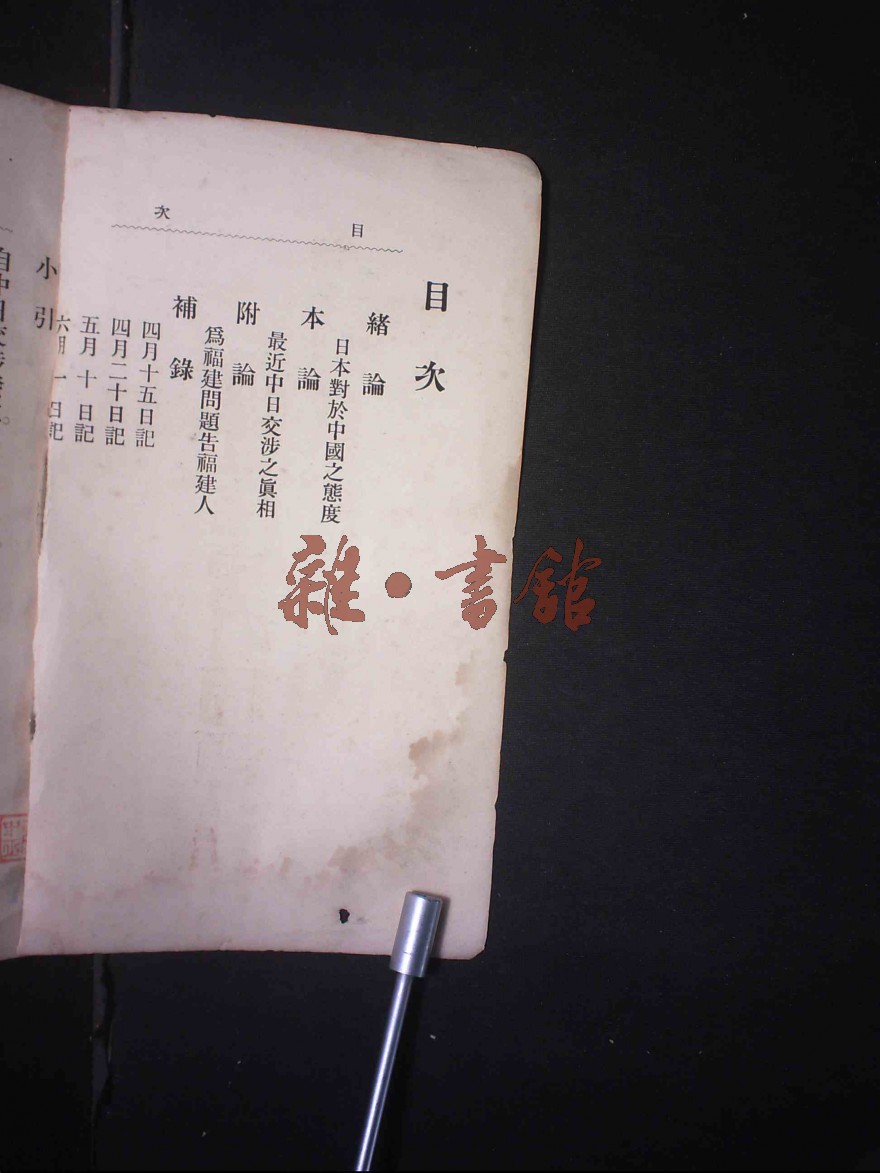 目次
目次
緒論
日本對於中國之態度
本論
最近中日交涉之眞相
附論
爲福建問題告福建人
補錄
四月十五日記
四月二十日記
五月十日記
六月一日記
小引
雜·書館